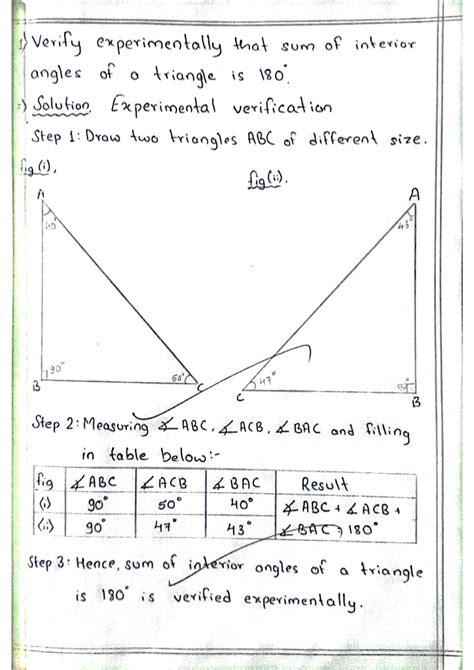 1) Verify experimentally that sum of interior
angles of a triangle is 180°.
:) Solution, Experimental verification
Step 1: Draw two triangles ABC of different size.
fig(i),
fig(ii).
A
A
40°
43°
90°
50°
47°
90°
B
C
C
B
Step 2: Measuring ∡ ABC, ∡ ACB, ∡ BAC and filling
in table below:-
fig ∡ ABC ∡ ACB ∡ BAC Result
(i) 90° 50° 40° ∡ ABC + ∡ ACB +
(ii) 90° 47° 43° ∡ BAC = 180°
Step 3: Hence, sum of interior angles of a triangle
is 180° is verified experimentally.